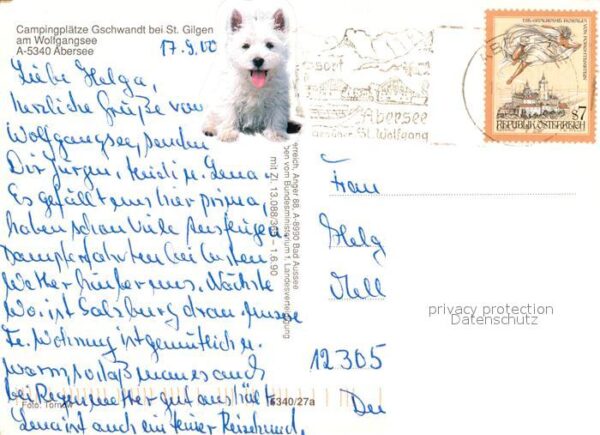 Campingplätze Gschwandt bei St. Gilgen
am Wolfgangsee
A-5340 Abersee
17.9.00
Liebe Helga,
herzliche Grüße vom
Wolfgangsee, senden
Dir Jürgen, Heidi u. Lena.
Es gefällt uns hier prima,
haben schon viele
Dampferfahrten bei
Wetter hinter uns. Nächste
Wo. ist Salzburg dran. Unsere
Fe. Wohnung ist gemütlich u.
warm, so daß man es auch
bei Regenwetter gut aushält.
Lena ist auch ein feiner Reisehund.
Foto: 
5340/27a
Anger 88, A-8990 Bad Aussee
vom Bundesministerium f. Landesverteidigung
mit Zl. 13.088/3 - 1.6.90
Abersee
St. Wolfgang
S7
REPUBLIK ÖSTERREICH
Frau
Helg
12305
privacy protection
Datenschutz